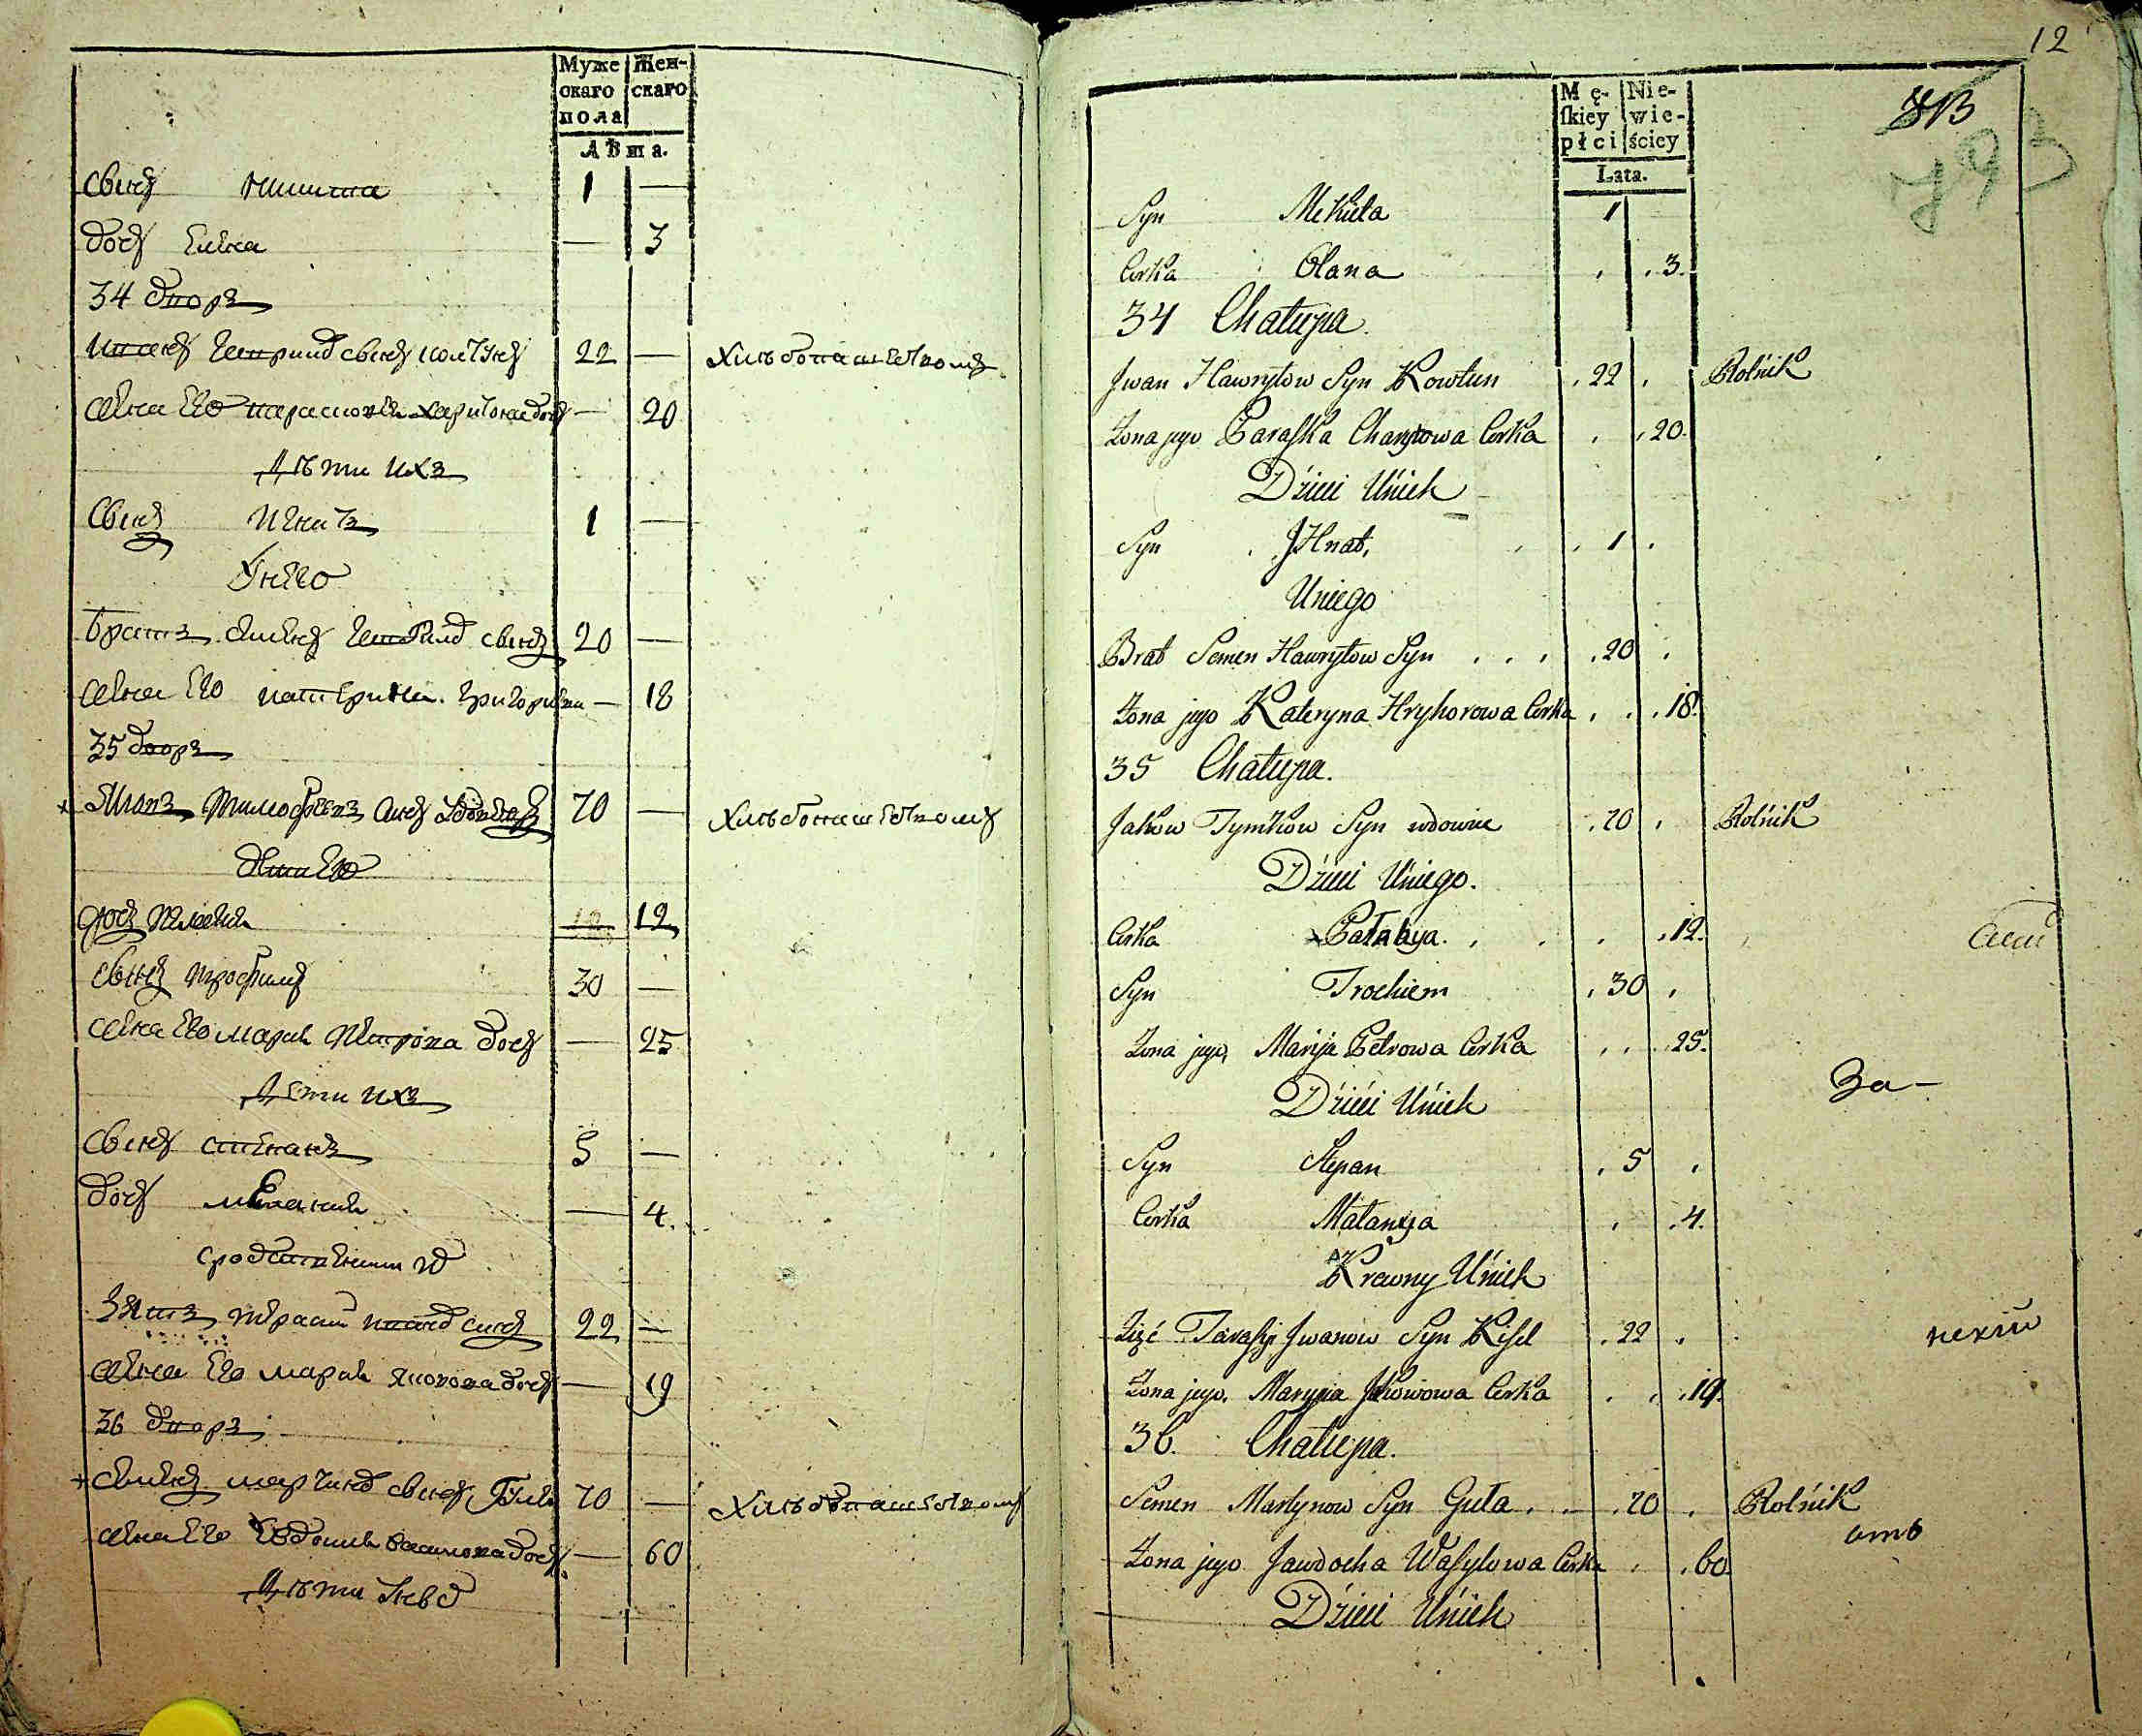 Муже скаго пола
Жен- скаго
Лѣта.
сынъ Микита 1 —
дочь Елена — 3
34 дворъ
Иванъ Гаврилов сынъ Колтунъ 22 — Хлѣбопашествомъ
жена его Парасковія Харитонова дочь — 20
Дѣти ихъ
Сынъ Игнатъ 1 —
У него
братъ Семенъ Гаврилов сынъ 20 —
жена его Катерина Григорiева — 18
35 дворъ
Яковъ Тимофеевъ сынъ вдовецъ 70 — Хлѣбопашествомъ
дети его
дочь Пелагия 12
сынъ Трофимъ 30 —
жена его Мария Петрова дочь — 25
Дети ихъ
сынъ Степанъ 5 —
дочь Мелания — 4.
сродственники
зять Тарасий сынъ 22 —
жена его Мария Яковова дочь — 19
36 дворъ
Семенъ Мартинов сынъ Гула 70 — Хлѣбопашествомъ
жена его Евдокия дочь — 60
Дѣти
12
793
Mę- ſkiey płci
Nie- wie- ściey
Lata.
Syn Mekuła 1
Corka Olana 3.
34 Chałupa.
Jwan Hawryłow Syn Kowtun 22 Rolnik
Żona jego Paraſka Charytowa Corka 20.
Dzieci Uńich
Syn JHnat, 1
Uniego
Brat Semen Hawryłow Syn 20
Żona jego Kateryna Hryhorowa Corka 18.
35 Chałupa.
Jakow Tymkow Syn wdowiec 70 Rolnik
Dzieci Uniego.
Corka Pałahya. 12.
Syn Trochiem 30
Żona jego, Marija Petrowa Corka 25.
За —
Dzieci Uńich
Syn Stepan 5
Corka Małanya 4.
Krewny Uńich
Zięć Taraſij Jwanow Syn Kiſel 22
Żona jego, Maryia Jakowowa Corka 19.
36. Chałupa.
Semen Martynow Syn Guła 70 Rolnik
Żona jego Jawdocha Waſylowa Corka 60
Dzieci Uńich